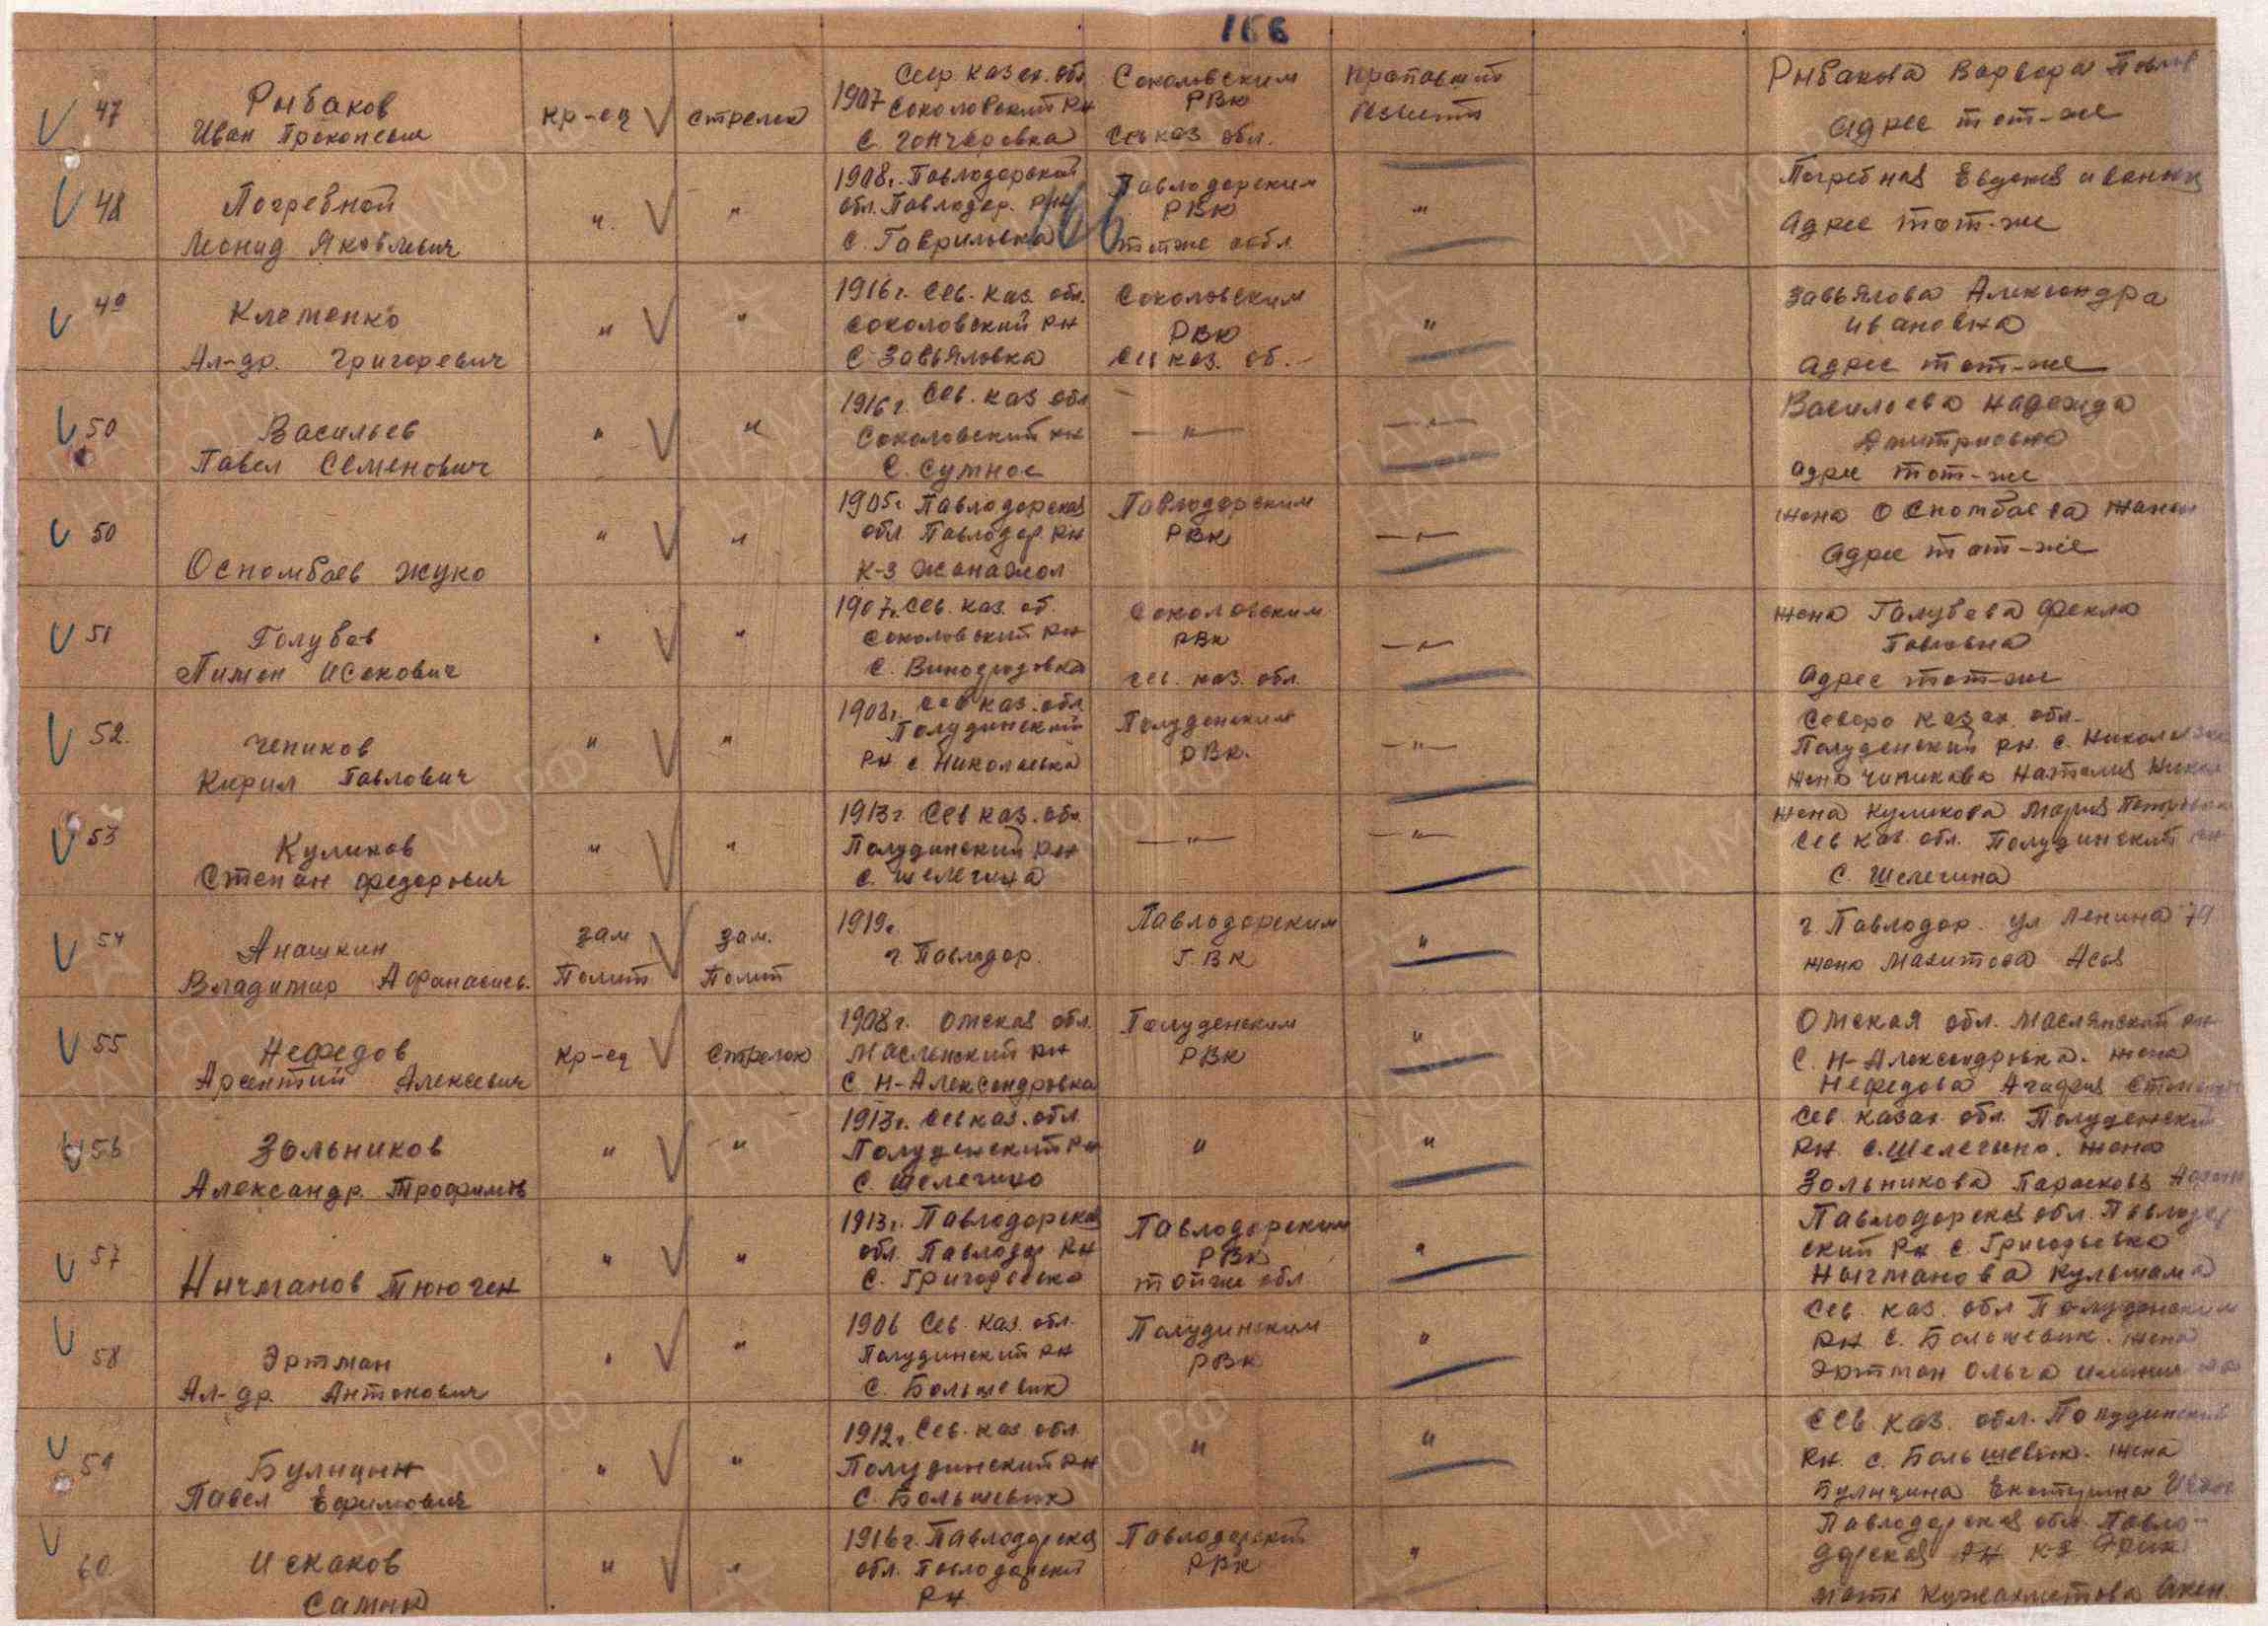 166
47 Рыбаков Иван Прокопевич кр-ец стрелок 1907 Сев. каз ск. обл. Соколовский рн с. Гончаровка Соколовским РВК Сев каз обл. пропавший безвести Рыбакова Варвара Павлов адрес тот-же
48 Погребной Леонид Яковлевич " " 1908г. Павлодарской обл. Павлодар. рн с. Гавриловка 166 Павлодарским РВК тотже обл. " Погребная Евдокия ивановн адрес тот-же
49 Клеменко Ал-др. Григоревич " " 1916г. Сев. каз. обл. Соколовский рн с Завьяловка Соколовским РВК Сев каз. об. " Завьялова Александра ивановна адрес тот-же
50 Васильев Павел Семенович " " 1916г. Сев. каз обл Соколовский рн с. Сумное — " — — " — Васильева Надежда Дмитриевна адрес тот-же
50 Оспомбаев Жуко " " 1905г Павлодарская обл Павлодар рн к-з Жанажол Павлодарским РВК — " — жена Оспомбаева адрес тот-же
51 Голубев Пимен Исакович " " 1907г. Сев. каз. об. Соколовский рн с. Виноградовка Соколовским РВК Сев. каз. обл. — " — жена Голубева Фекла Павловна адрес тот-же
52. Чепиков Кирил Павлович " " 1908г. Сев каз. обл Полудинский рн с. Николаевка Полуденским РВК. — " — Северо казах. обл. Полуденский рн. с. Николаевка жена Чипикова Наталия
53 Куликов Степан Федорович " " 1913г. Сев каз. обл. Полудинский рн с. Шелегина — " — — " — жена Куликова Мария Петровна Сев каз. обл. Полудинский рн с. Шелегина
54 Анашкин Владимир Афанасиев. зам Полит зам. Полит 1919г. г Павлодар. Павлодарским Г.В К " г Павлодар. ул Ленина 79 жена Махитова Ася
55 Нефедов Арсентий Алексевич кр-ец стрелок 1908г. Омская обл. Маслянский рн с Н-Александровка Полуденским РВК " Омская обл. Маслянский рн с. Н-Александровка. жена Нефедова Агафия
56 Зольников Александр. Трофимов " " 1913г. Сев каз. обл Полуденский рн с. Шелегино " " Сев казах. обл. Полуденский рн. с. Шелегино. жена Зольникова Парасковя
57 Ничманов Тююген " " 1913г. Павлодарская обл. Павлодар рн с. Григоревка Павлодарским РВК тойже обл " Павлодарская обл. Павлодарский рн с Григорьевка Ничманова Кульшама
58 Эртман Ал-др. Антонович " " 1906 Сев. каз. обл. Полудинский рн с. Большевик Полудинским РВК " Сев. каз. обл Полуденским рн с. Большевик. жена Эртман Ольга
59 Булицын Павел Ефимович " " 1912г. Сев. каз обл Полудинский рн с. Большевик " " Сев каз. обл. Полудинский рн. с. Большевик. жена Булицина Екатерина
60. Искаков Самик " " 1916г. Павлодарская обл. Павлодарский рн Павлодарский РВК " Павлодарская обл. Павлодарская рн к-з мать Кужахметова